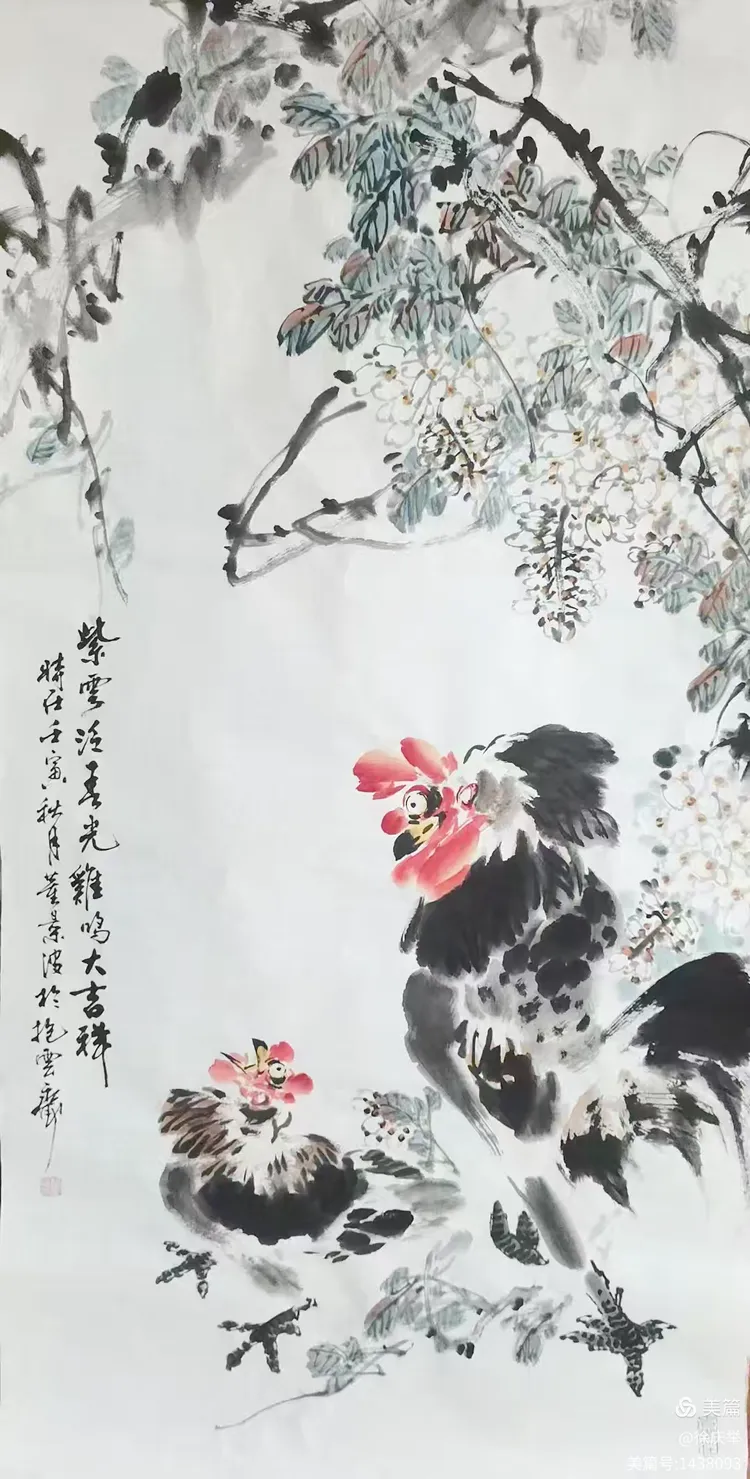 紫雲泛春光雞鳴大吉祥
時在壬寅秋月董景波於抱雲齋
美篇
@徐庆华
美篇号:1438093